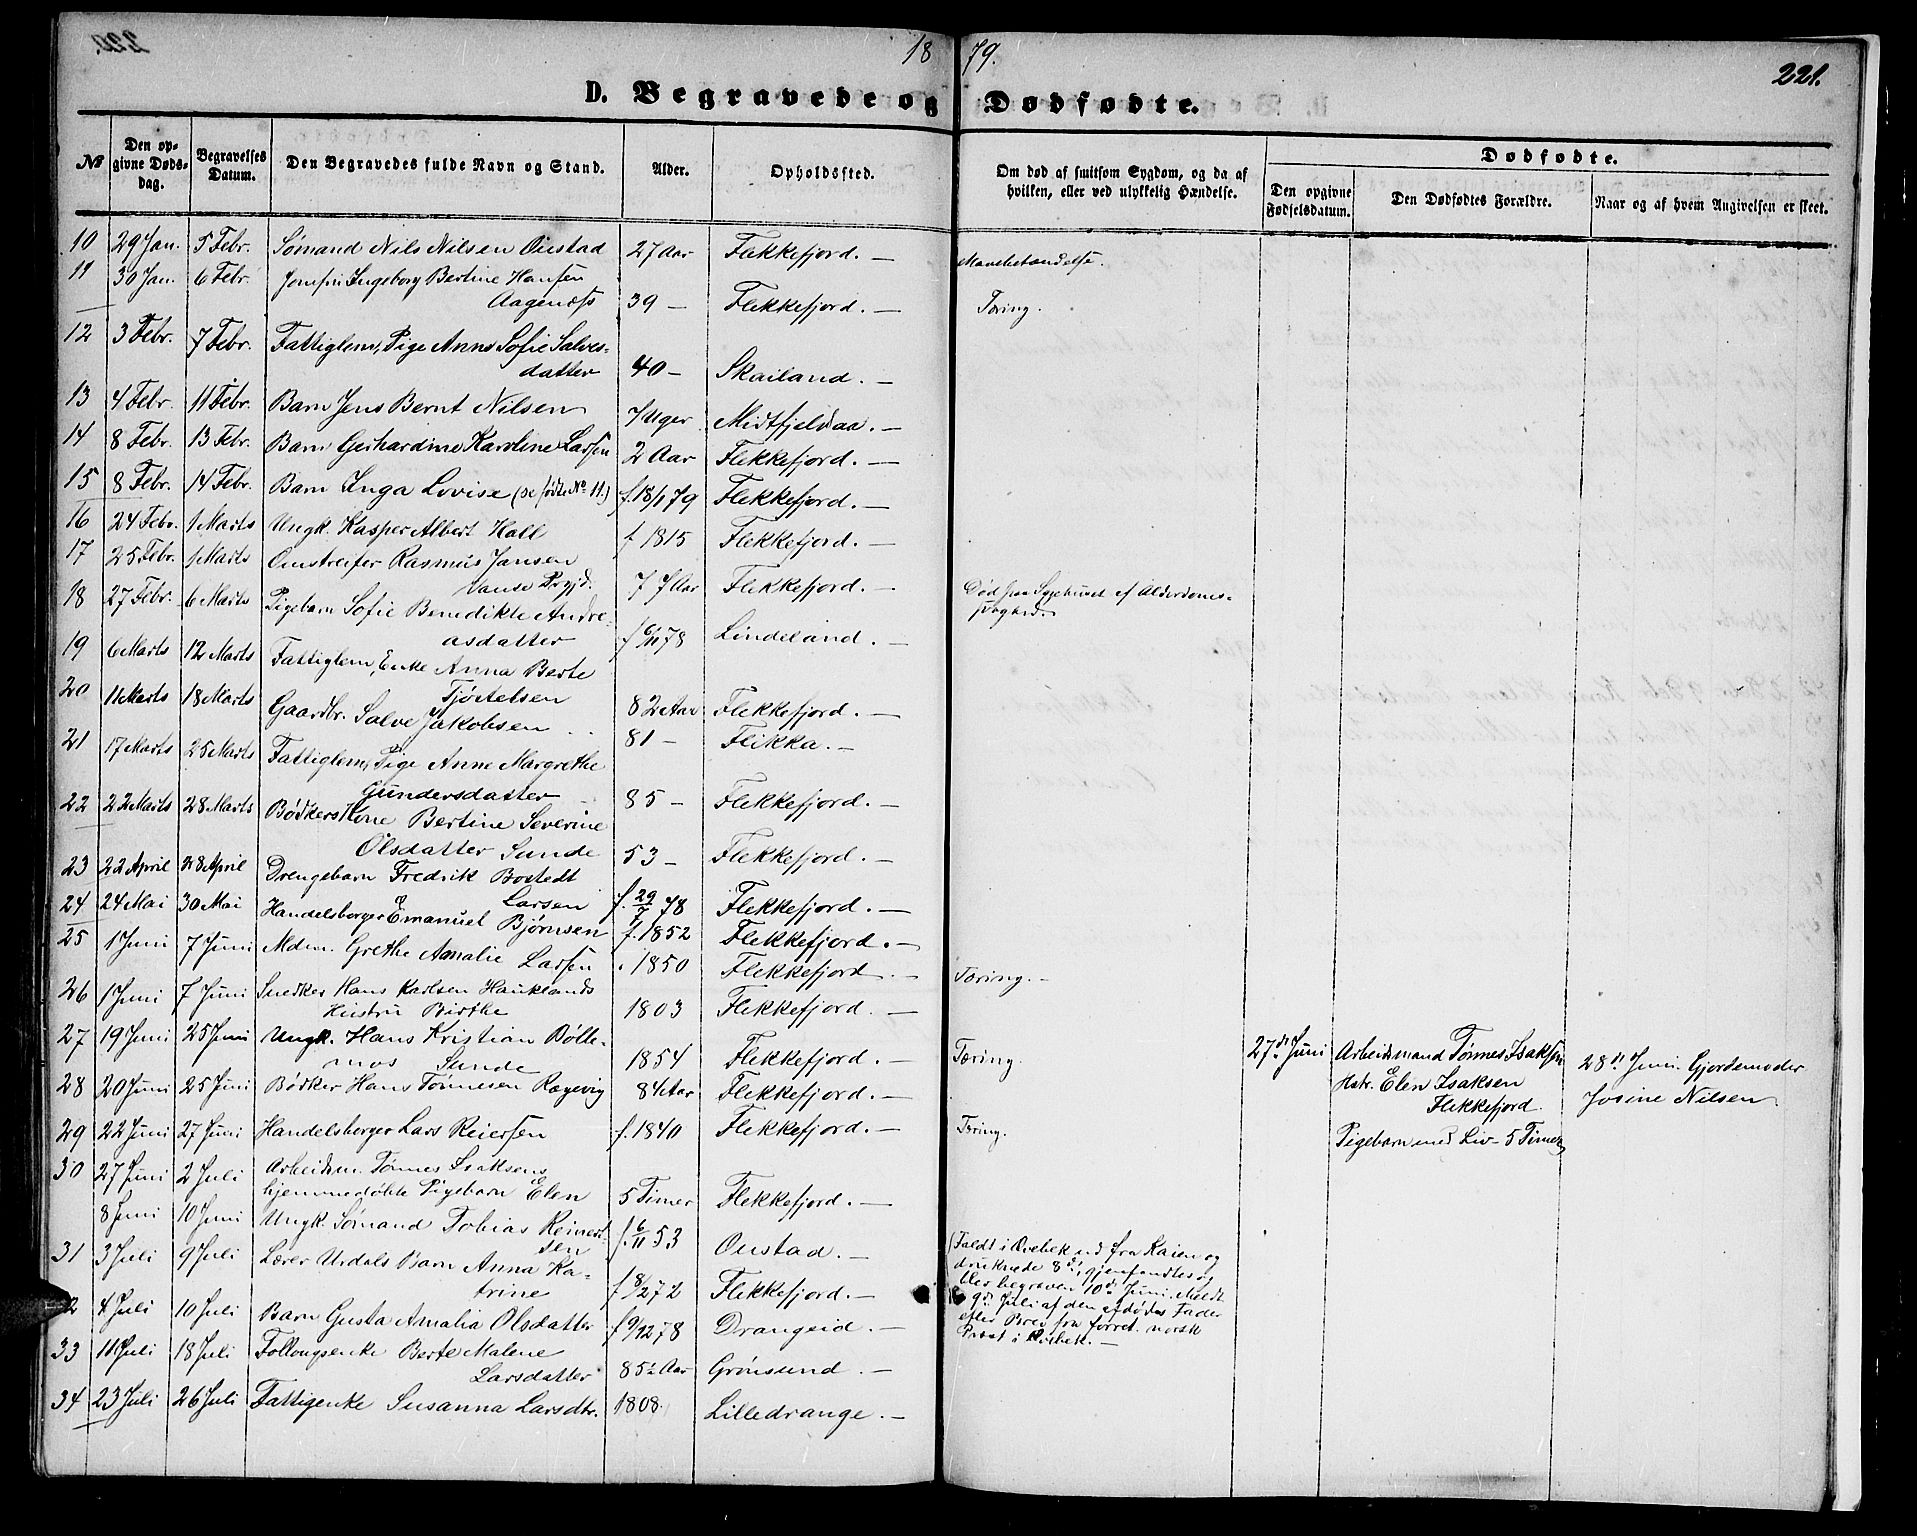 1879.
221.
D. Begravede og Dødfødte.
No
Den opgivne Dødsdag.
Begravelses Datum.
Den Begravedes fulde Navn og Stand.
Alder.
Opholdssted.
Om død af smitsom Sygdom, og da af hvilken, eller ved ulykkelig Hændelse.
Dødfødte.
Den opgivne Fødselsdatum.
Den Dødfødtes Forældre.
Naar og af hvem Angivelsen er skeet.
10 29 Jan. 5 Febr. Sømand Nils Nilsen Oustad 27 Aar Flekkefjord. — Mavebetændelse.
11 30 Jan. 6 Febr. Jomfru Ingeborg Bertine Hansen
Aagenæs 39 — Flekkefjord. — Tæring.
12 3 Febr. 7 Febr. Fattiglem, Pige Anna Sofie Salves-
datter 40 — Skailand. —
13 4 Febr. 11 Febr. Barn Jens Bernt Nilsen 7 Uger Midtfjeldsaa. —
14 8 Febr. 13 Febr. Barn Gerhardine Karoline Larsen 2 Aar Flekkefjord. —
15 8 Febr. 14 Febr. Barn Inga Lovise (se fødte No 11.) f. 18/1 79 Flekkefjord. —
16 24 Febr. 1 Marts Ungk. Kasper Albert Hall f 1815 Flekkefjord. —
17 25 Febr. 1 Marts Omstreifer Rasmus Jansen
Vanse Prgjd. 77 Aar Flekkefjord. — Død paa Sygehuset af Alderdoms-
svaghed.
18 27 Febr. 6 Marts Pigebarn Sofie Benedikte Andre-
asdatter f 6/11 78 Lindeland. —
19 6 Marts 12 Marts Fattiglem, Enke Anna Berte
Tjøstelsen 82 Aar Flekkefjord. —
20 11 Marts 18 Marts Gaardbr. Salve Jakobsen 81 — Flikka. —
21 17 Marts 25 Marts Fattiglem, Pige Anne Margrethe
Gundersdatter 85 — Flekkefjord. —
22 22 Marts 28 Marts Bødkers Kone Bertine Severine
Olsdatter Sunde 53 — Flekkefjord. —
23 22 April 28 April Drengebarn Fredrik Bostedt
Larsen f. 29/7 78 Flekkefjord. —
24 24 Mai 30 Mai Handelsborger Emanuel Bjørnsen f. 1852 Flekkefjord. —
25 1 Juni 7 Juni Mdm. Grethe Amalie Larsen 1850 Flekkefjord. — Tæring. —
26 1 Juni 7 Juni Snedker Hans Karlsen Hauklands
Hustru Birthe 1803 Flekkefjord. —
27 19 Juni 25 Juni Ungk. Hans Kristian Bølle-
mos Sunde 1854 Flekkefjord. — Tæring.
28 20 Juni 25 Juni Bødker Hans Tønnesen Rægevig 84 Aar Flekkefjord. —
29 22 Juni 27 Juni Handelsborger Lars Reiersen f. 1840 Flekkefjord. — Tæring.
30 27 Juni 2 Juli Arbeidsm. Tønnes Isaksens
hjemmedøbte Pigebarn Elen 5 Timer Flekkefjord. —
8 Juni 10 Juni Ungk. Sømand Tobias Reinert-
sen f. 6/11 53 Oustad. —
31 3 Juli 9 Juli Lærer Urdals Barn Anna Ka-
trine f 8/2 72 Flekkefjord. —
32 4 Juli 10 Juli Barn Gusta Amalia Olsdatter f 9/12 78 Drangeid. —
33 11 Juli 18 Juli Follougsenke Berte Malene
Larsdatter 85½ Aar Grønsund. —
34 23 Juli 26 Juli Fattigenke Susanna Larsdtr. 1808 Lilledrange. —
Faldt i ud fra Kaien og
druknede 8de, gjenfandtes og
blev begraven 10de Juni. Meldt
9de Juli af den afdødes Fader
efter Brev fra forret. norsk
Præst i
27de Juni Arbeidsmand Tønnes Isaksen
Hstr. Elen Isaksen
Flekkefjord.
Pigebarn med Liv - 5 Timer
28de Juni. Gjordemoder
Josine Nilsen